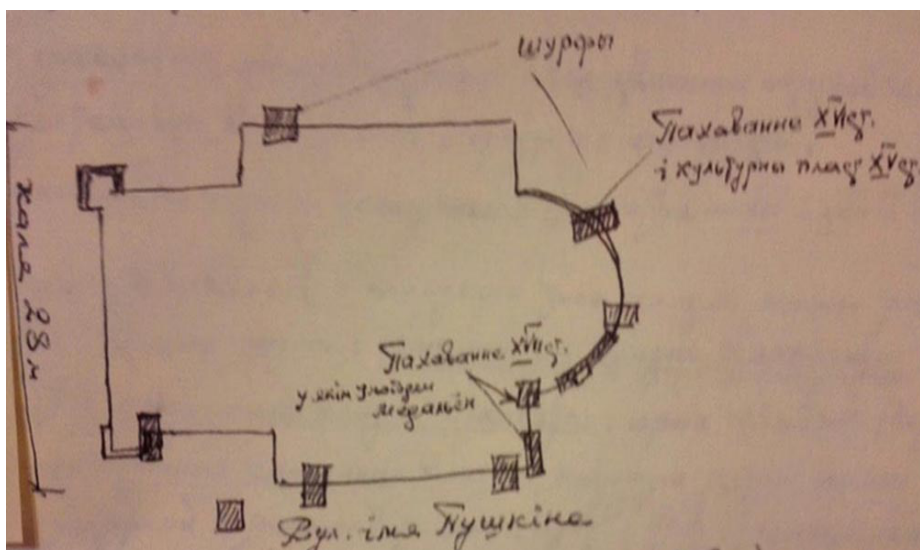 шурфы
Пахаванне XVIст.
і культурны пласт XVст.
каля 28 м
Пахаванне XVIIст.
у якім знойдзен
медальён
Вул. імя Пушкіна